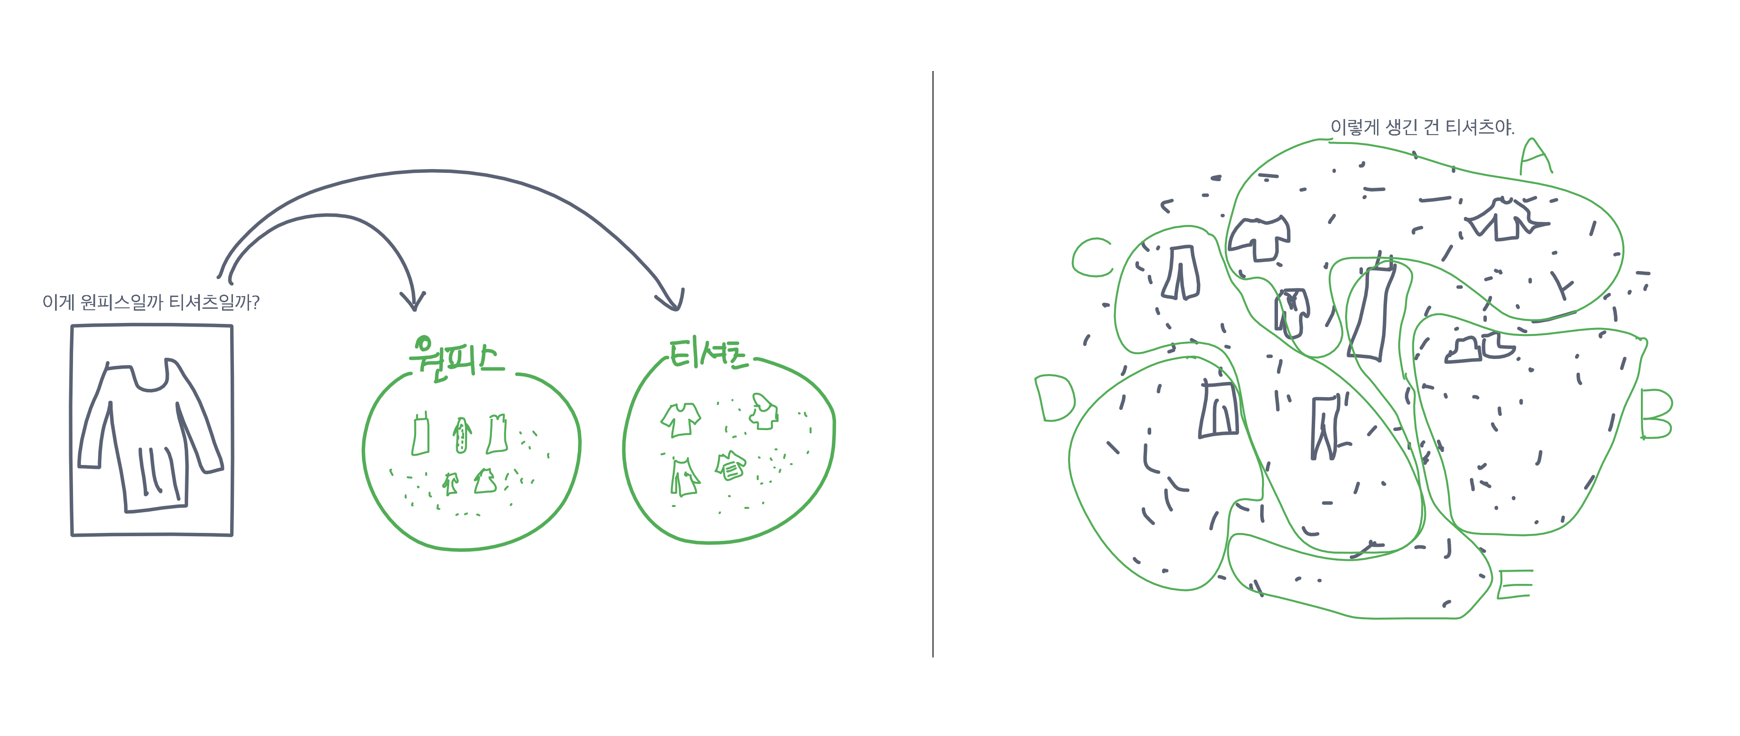 이게 원피스일까 티셔츠일까?
원피스
티셔츠
이렇게 생긴 건 티셔츠야.
A
C
D
B
E